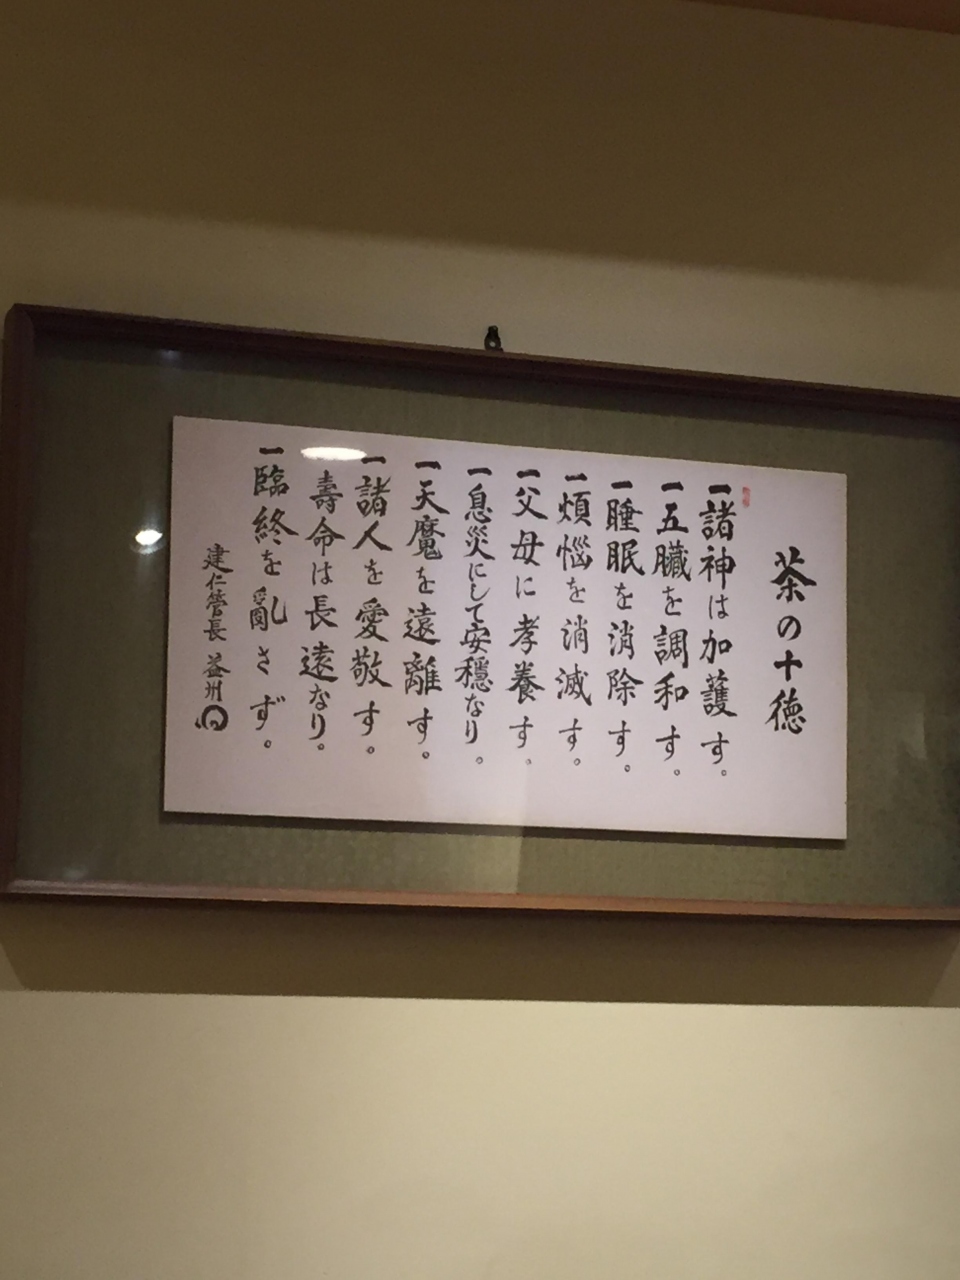 茶の十徳
一諸神は加護す。
一五臓を調和す。
一睡眠を消除す。
一煩悩を消滅す。
一父母に孝養す。
一息災にして安穏なり。
一天魔を遠離す。
一諸人を愛敬す。
壽命は長遠なり。
一臨終を亂さず。
建仁管長 益州